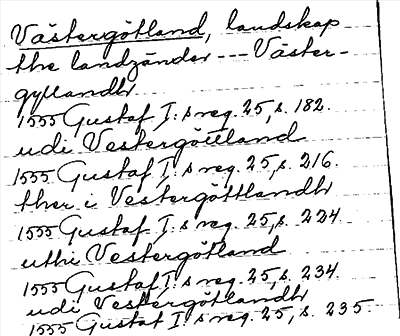 Västergötland, landskap
the landzänder --- Väster-
gyllandh
1555 Gustaf I:s reg. 25, s. 182.
udi Vestergöttland
1555 Gustaf I:s reg. 25, s. 216.
ther i Vestergöttlandh
1555 Gustaf I:s reg. 25, s. 224
uthi Vestergötland
1555 Gustaf I:s reg. 25, s. 234.
udi Vestergötlandh
1555 Gustaf I:s reg. 25, s. 235.